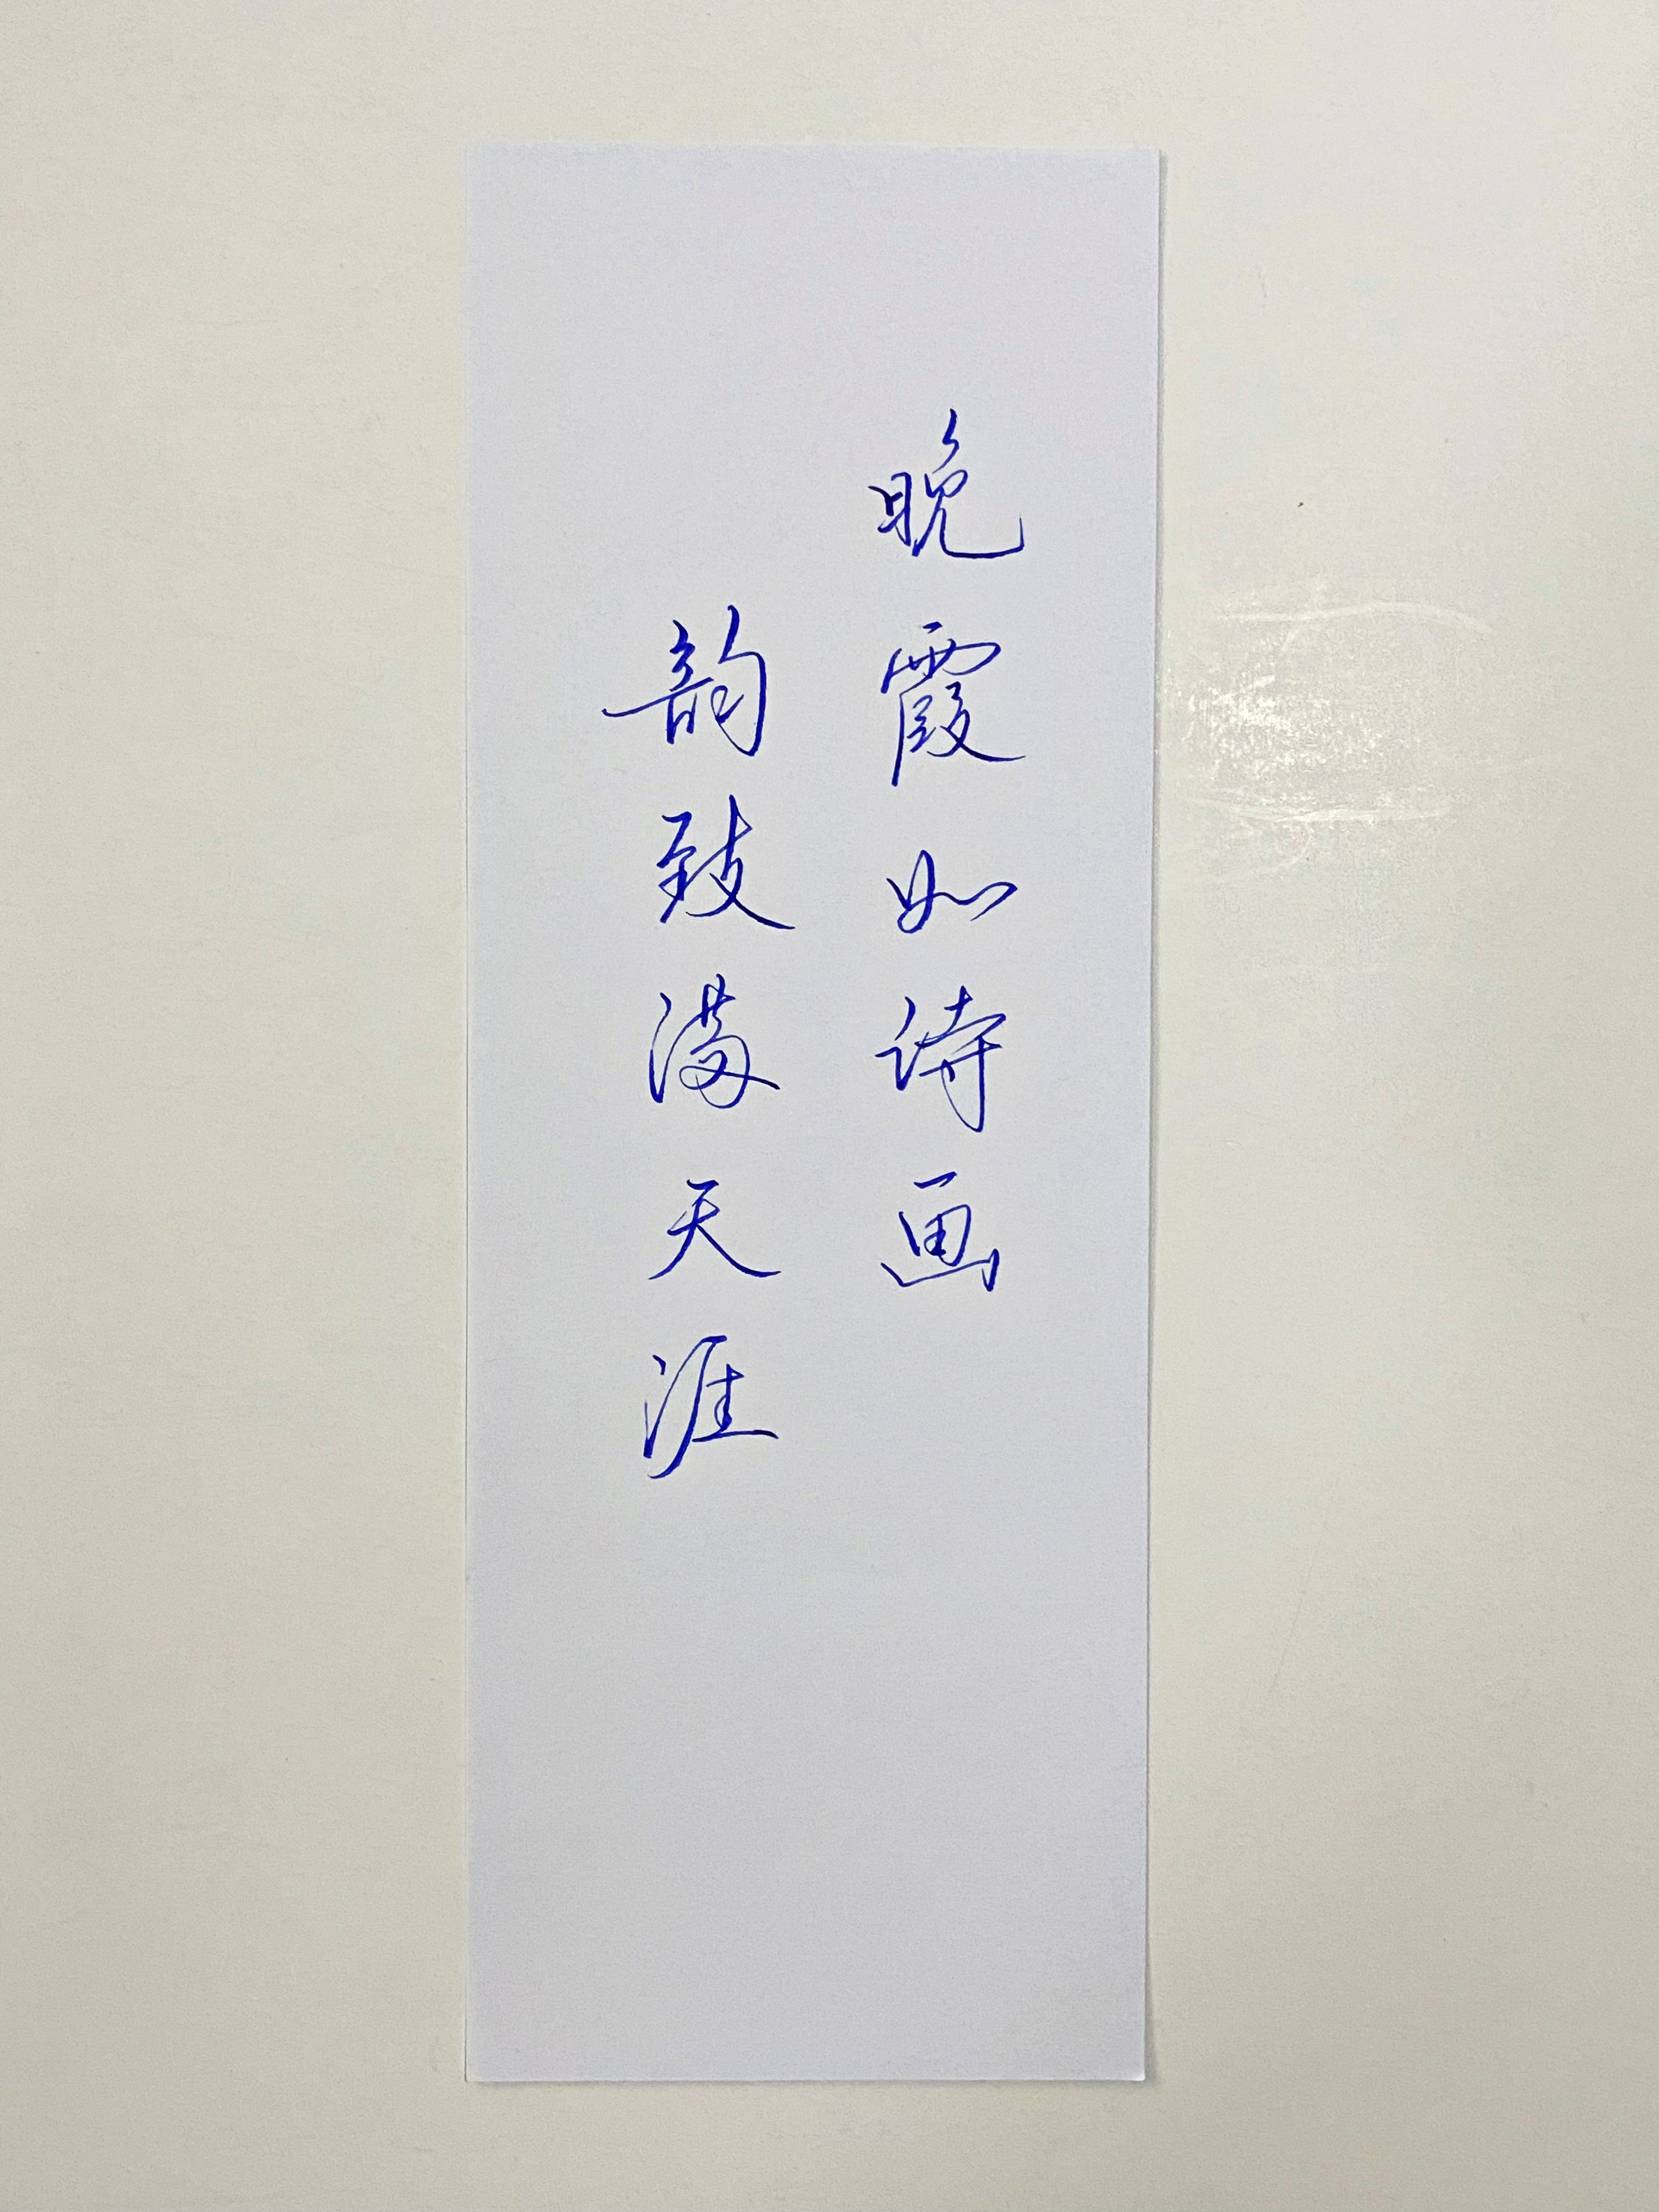 晚霞如诗画
韵致满天涯